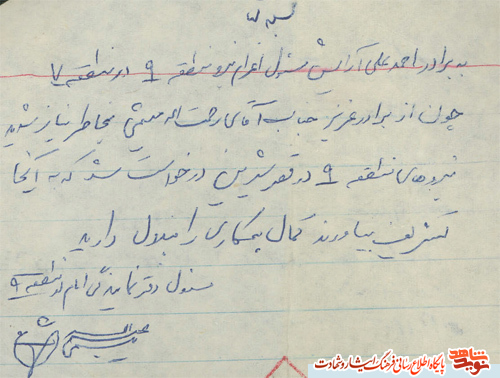 بسمه تعالی
به برادر احمد علی آرایش مسئول اعزام نیرو منطقه ۹ در منطقه ۷
چون از برادر عزیز جناب آقای رحمت اله میثمی بخاطر نیاز شدید
نیروهای منطقه ۹ در قصر شیرین درخواست شد که به آنجا
تشریف بیاورند کمال همکاری را مبذول دارید
مسئول دفتر نمایندگی امام در منطقه ۹
میثمی
نوید شاهد
پایگاه اطلاع رسانی فرهنگ ایثار و شهادت